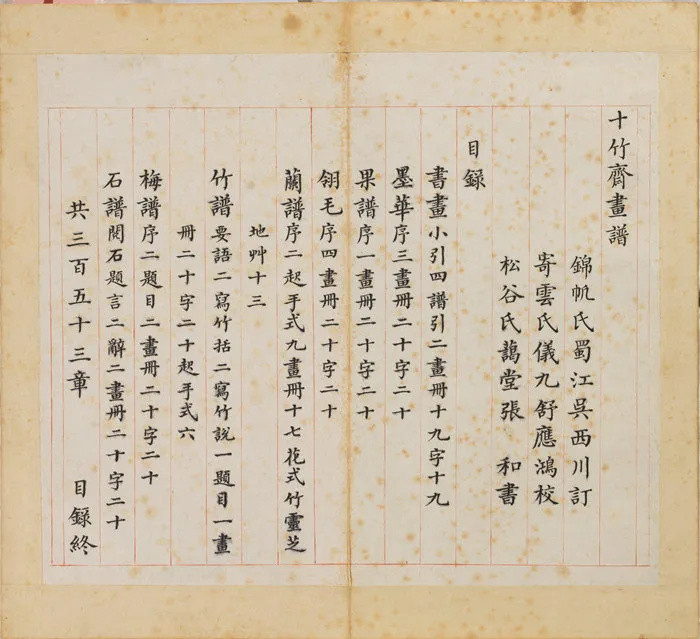 十竹齋畫譜
錦帆氏蜀江吳西川訂
寄雲氏儀九舒應鴻校
松谷氏藹堂張 和書
目錄
書畫小引四譜引二畫冊十九字十九
墨華序三畫冊二十字二十
果譜序一畫冊二十字二十
翎毛序四畫冊二十字二十
蘭譜序二起手式九畫冊十七花式竹靈芝
地艸十三
竹譜要語二寫竹括二寫竹說一題目一畫
冊二十字二十起手式六
梅譜序二題目二畫冊二十字二十
石譜閱石題言二辭二畫冊二十字二十
共三百五十三章 目錄終